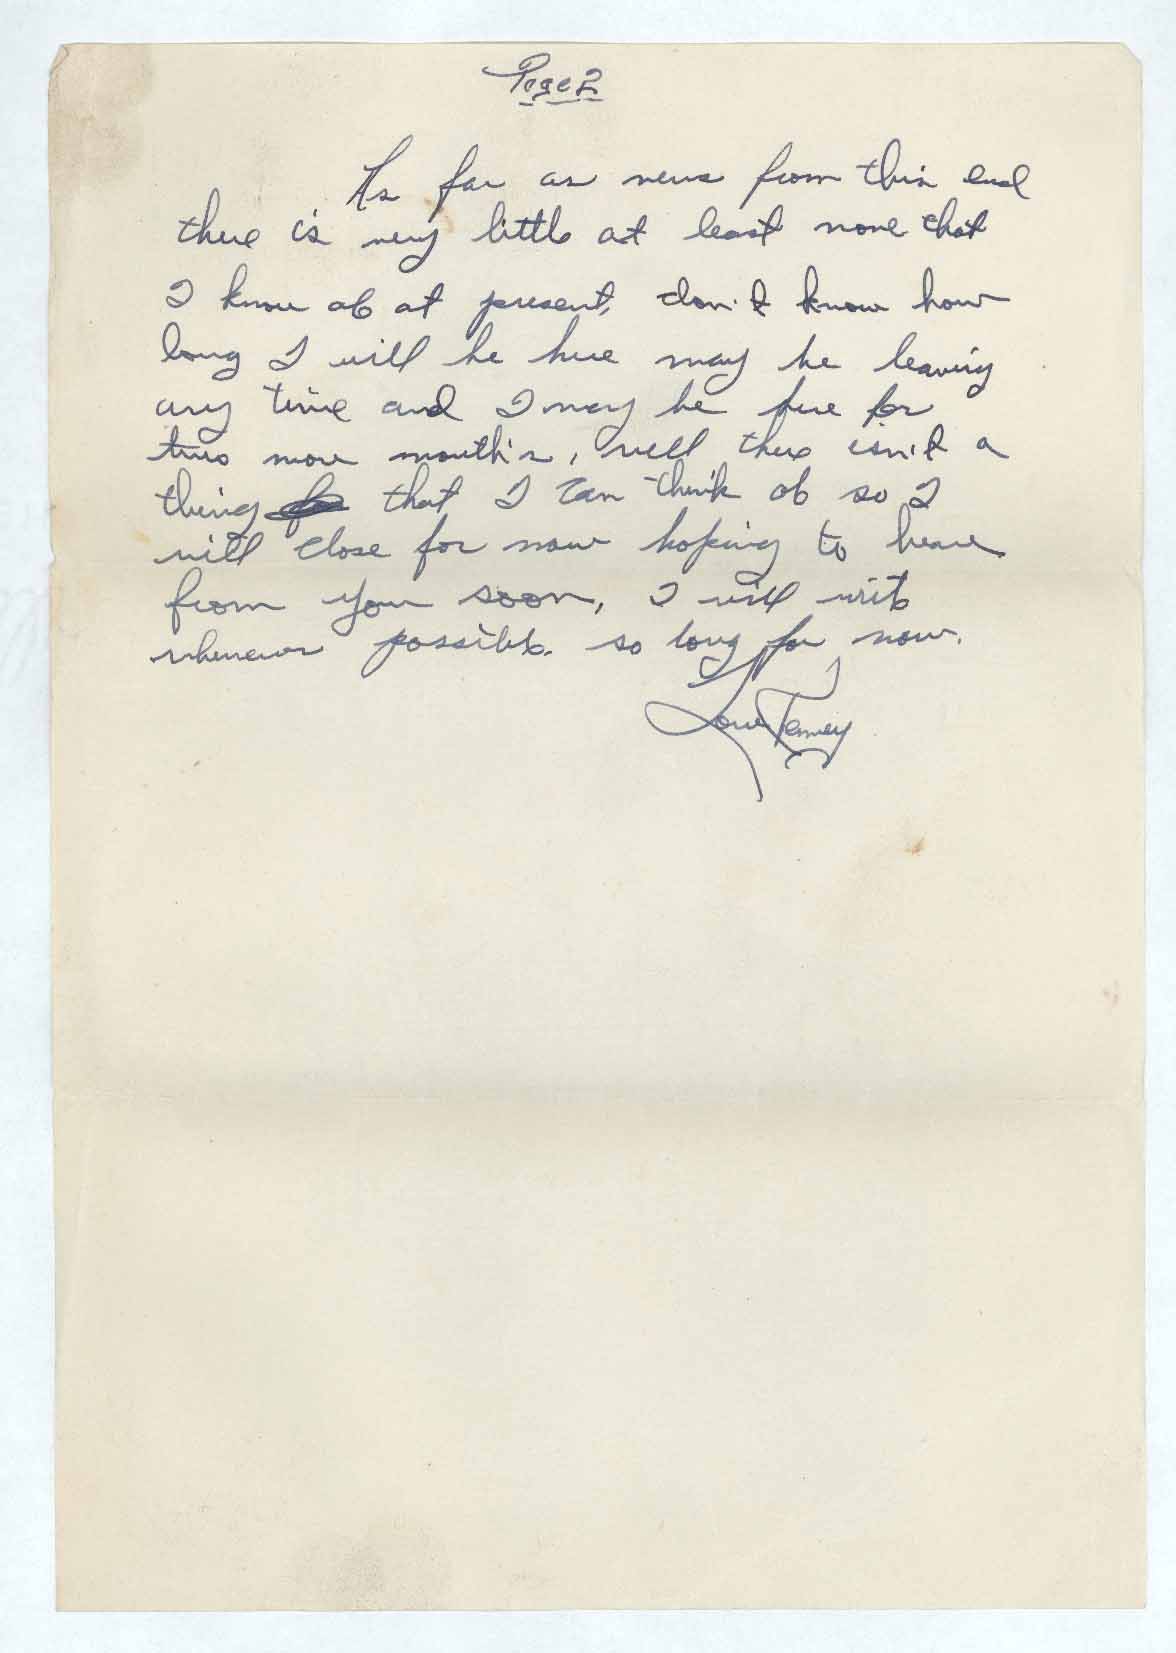 Page 2
As far as news from this end
there is very little at least none that
I know of at present, don't know how
long I will be here may be leaving
any time and I may be here for
two more month's, well there isn't a
thing that I can think of so I
will close for now hoping to hear
from you soon, I will write
whenever possible. so long for now.
Love